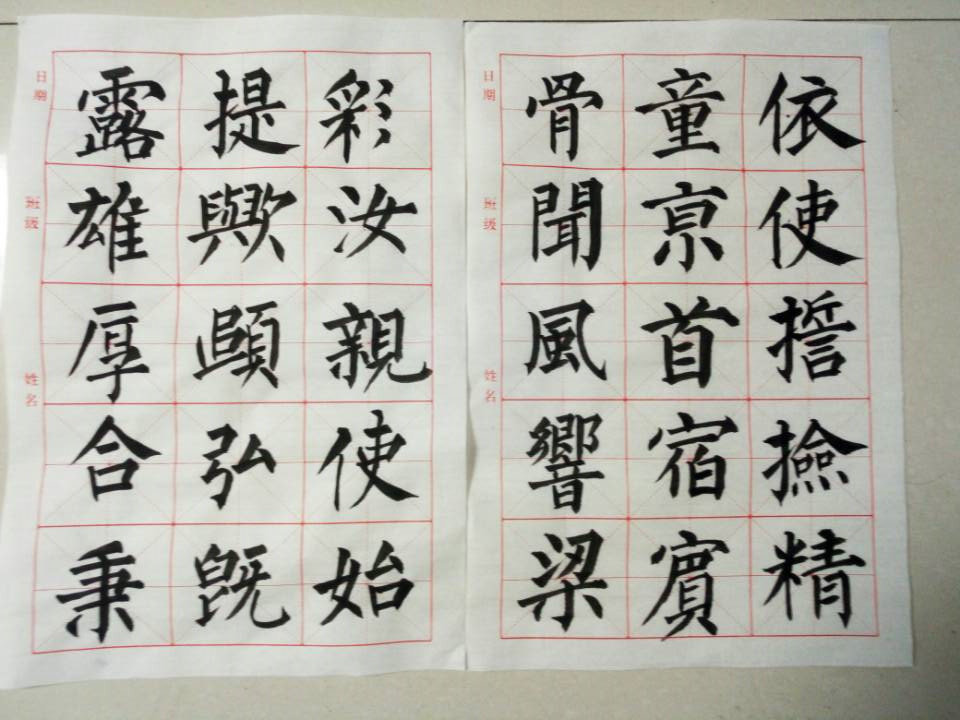 依使誓撿精
童亰首宿賓
骨聞風響梁
日期
班级
姓名
彩汝親使始
提歟弘既
露雄厚合秉
日期
班级
姓名